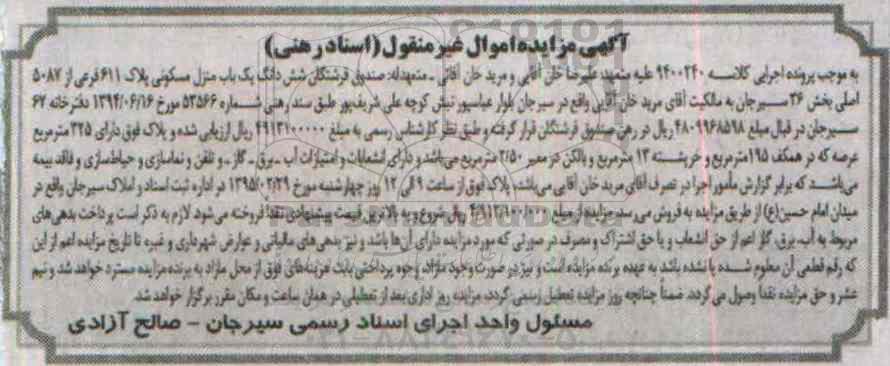 آگهی مزایده اموال غیر منقول (اسناد رهنی)
به موجب پرونده اجرایی کلاسه ۹۴۰۰۲۴۰ علیه متعهد: علیرضا خان آقایی و مرید خان آقائی ـ متعهدله: صندوق فرشتگان شش دانگ یک باب منزل مسکونی پلاک ۶۱۱ فرعی از ۵۰۸۷
اصلی بخش ۳۶ سیرجان به مالکیت آقای مرید خان آقایی واقع در سیرجان بلوار عباسپور نبش کوچه علی شریف‌پور طبق سند رهنی شماره ۵۳۵۶۶ مورخ ۱۳۹۴/۰۶/۱۶ دفترخانه ۶۷
سیرجان در قبال مبلغ ۴۸۰۹۹۶۸۵۹۸ ریال در رهن صندوق فرشتگان قرار گرفته و طبق نظر کارشناس رسمی به مبلغ ۴۹۱۳۱۰۰۰۰۰ ریال ارزیابی شده و پلاک فوق دارای ۳۲۵ مترمربع
عرصه که در همکف ۱۹۵ مترمربع و خرپشته ۱۳ مترمربع و بالکن در معبر ۲/۵۰ مترمربع می‌باشد و دارای انشعابات و امتیازات آب ـ برق ـ گاز ـ و تلفن و نماسازی و حیاط‌سازی و فاقد بیمه
می‌باشد که برابر گزارش مأمور اجرا در تصرف آقای مرید خان آقایی می‌باشد، پلاک فوق از ساعت ۹ الی ۱۲ روز چهارشنبه مورخ ۱۳۹۵/۰۲/۲۹ در اداره ثبت اسناد و املاک سیرجان واقع در
میدان امام حسین(ع) از طریق مزایده به فروش می‌رسد. مزایده از مبلغ ۴/۹۱۳/۱۰۰/۰۰۰ ریال شروع و به بالاترین قیمت پیشنهادی نقداً فروخته می‌شود. لازم به ذکر است پرداخت بدهی‌های
مربوط به آب، برق، گاز اعم از حق انشعاب و یا حق اشتراک و مصرف در صورتی که مورد مزایده دارای آن‌ها باشد و نیز بدهی‌های مالیاتی و عوارض شهرداری و غیره تا تاریخ مزایده اعم از این
که رقم قطعی آن معلوم شده یا نشده باشد به عهده برنده مزایده است و نیز در صورت وجود مازاد، وجوه پرداختی بابت هزینه‌های فوق از محل مازاد به برنده مزایده مسترد خواهد شد و نیم
عشر و حق مزایده نقداً وصول می‌گردد. ضمناً چنانچه روز مزایده تعطیل رسمی گردد، مزایده روز اداری بعد از تعطیلی در همان ساعت و مکان مقرر برگزار خواهد شد.
مسئول واحد اجرای اسناد رسمی سیرجان - صالح آزادی